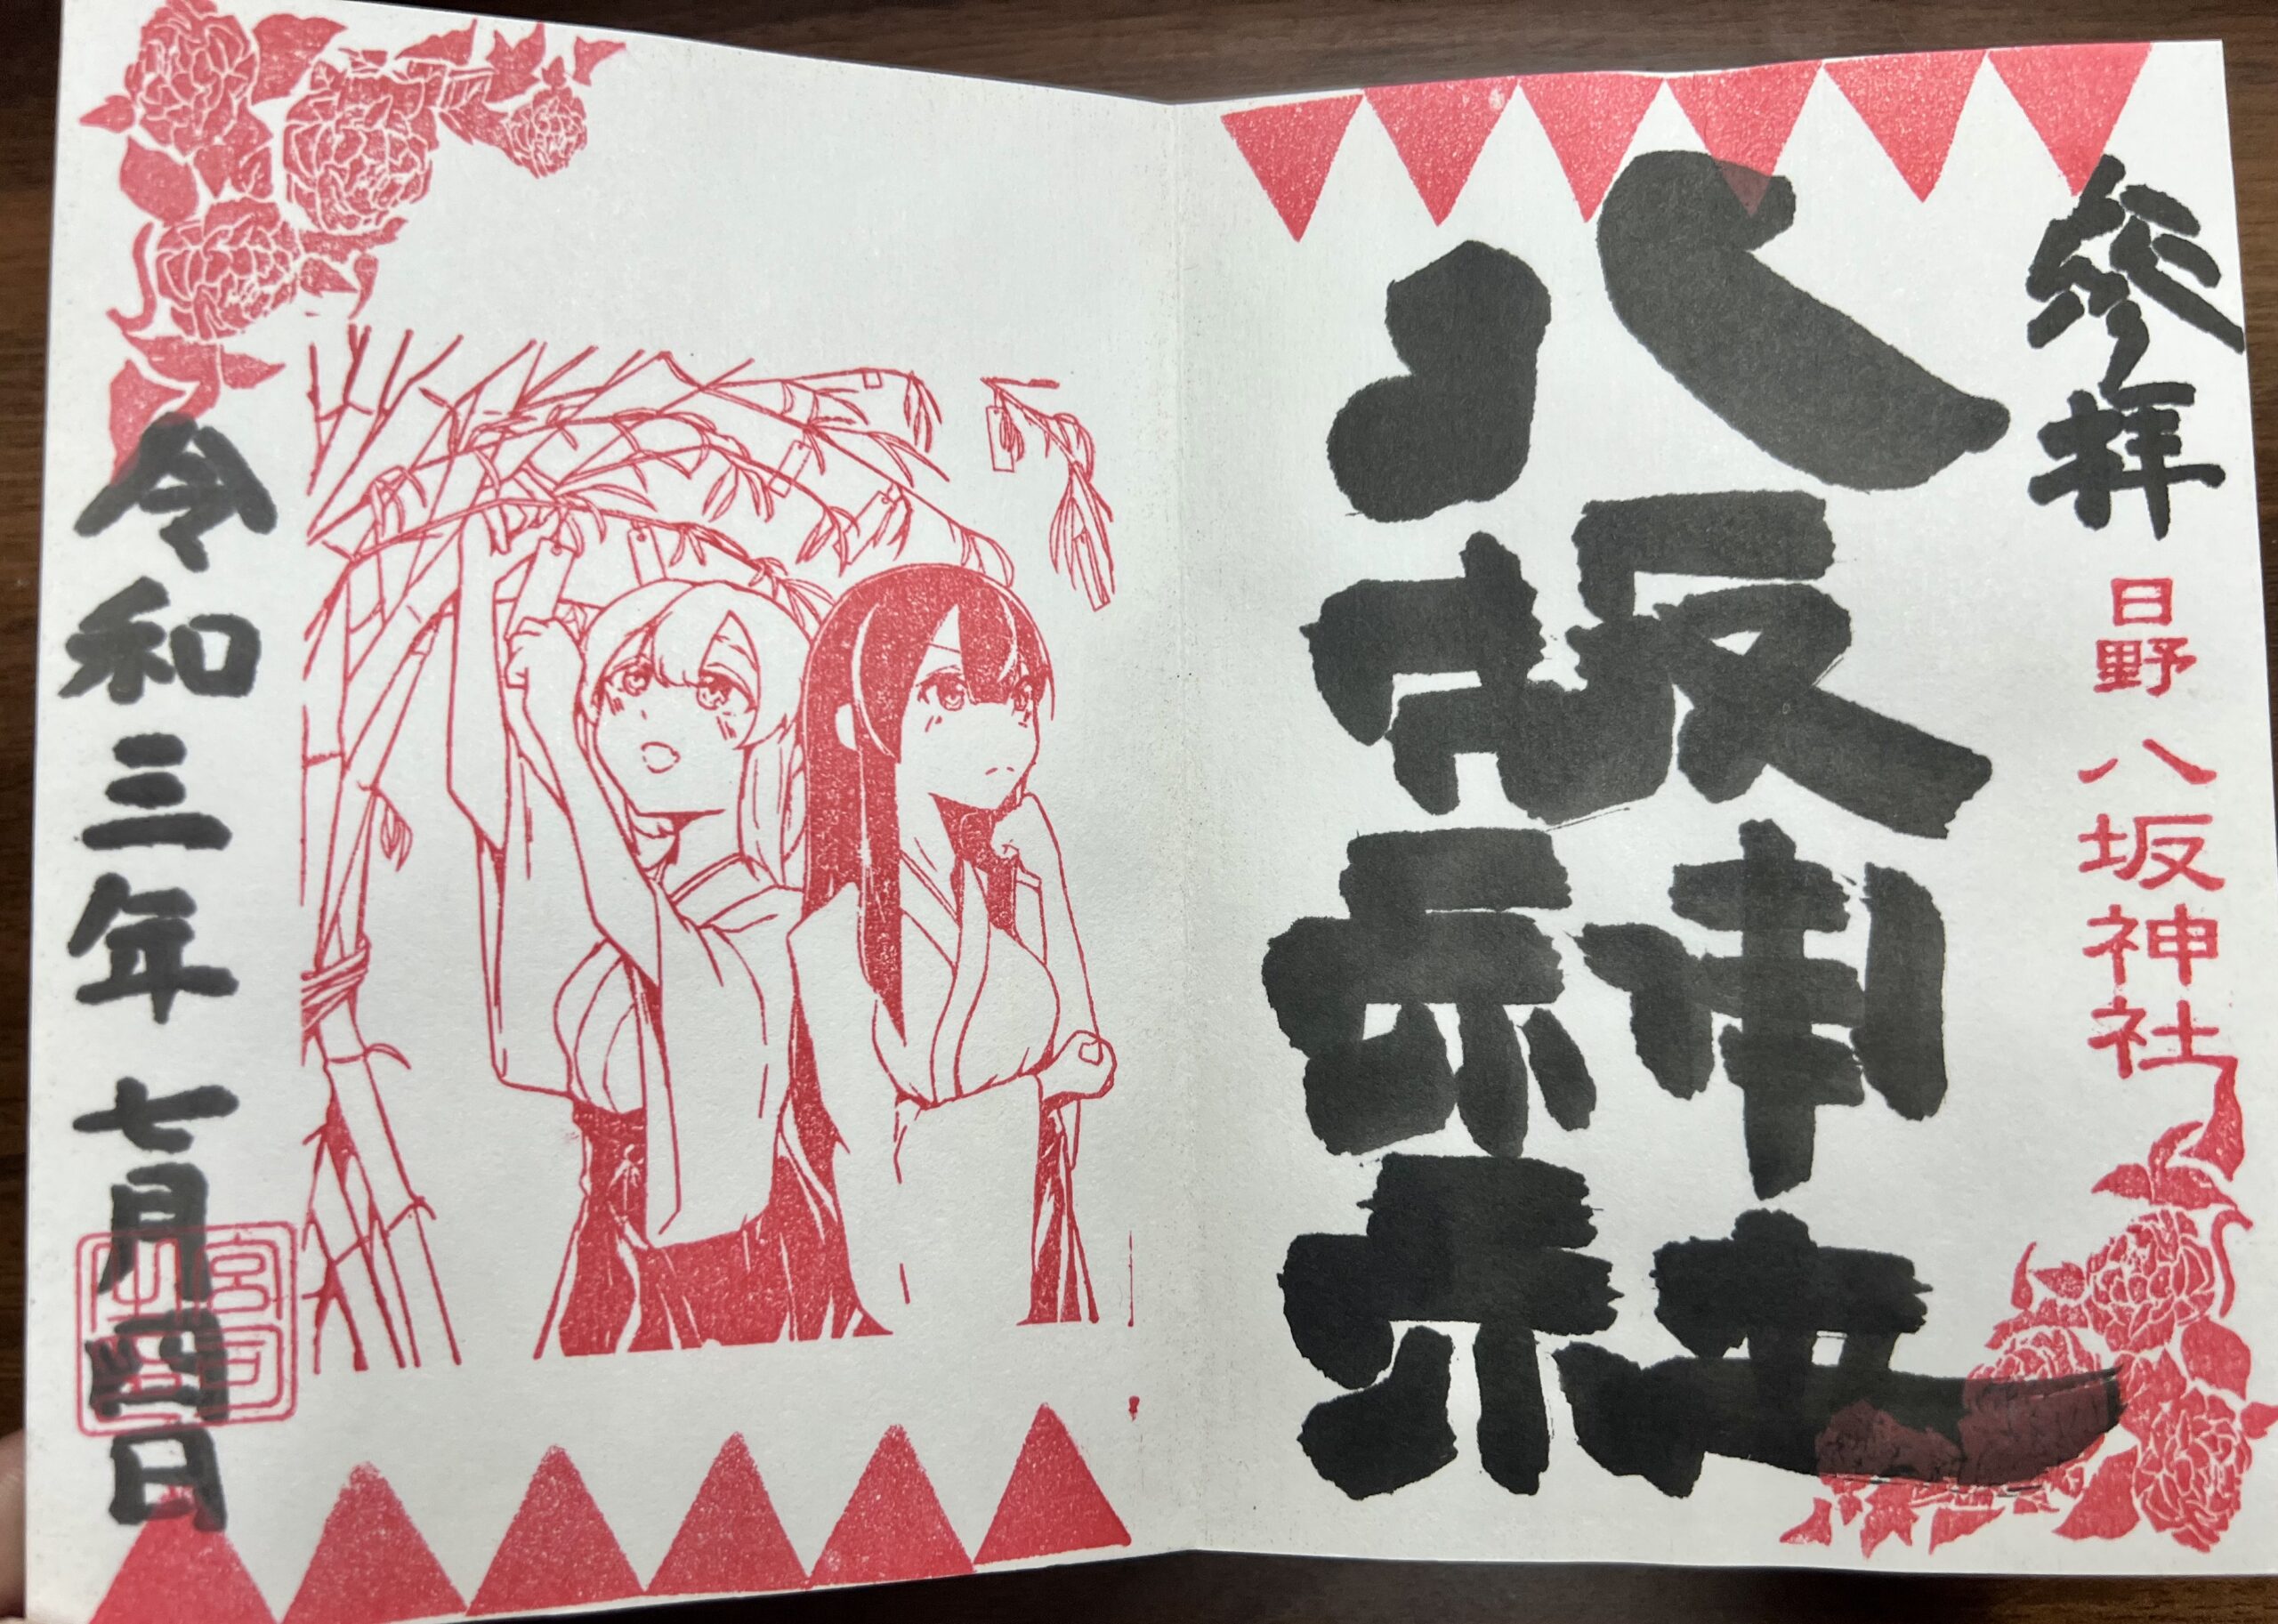 参拝
日野 八坂神社
八坂神社
令和三年 七月四日
宮司
之印